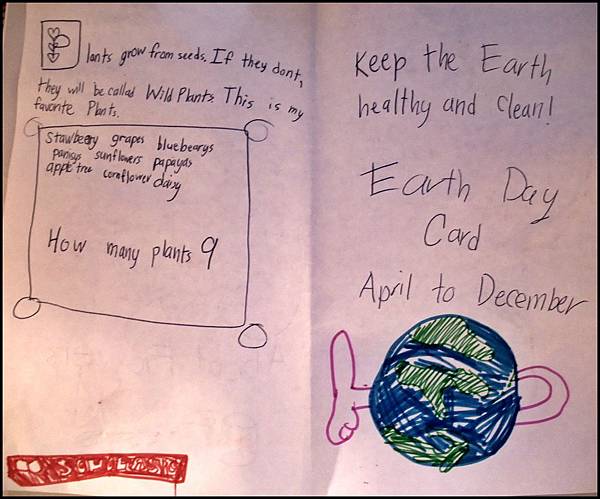 Plants grow from seeds. If they dont,
they will be called Wild Plants. This is my
favorite Plants.
Stawbeery grapes bluebearys
panisys sunflowers papayas
apple tree cornflower daisy
How many plants 9
Keep the Earth
healthy and clean!
Earth Day
Card
April to December